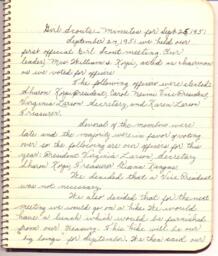 Girl Scouts - Minutes for Sept 25, 1951
September 25, 1951 we held our
first official Girl Scout meeting. Our
leader, Mrs. Williams, acted as chairman
as we voted for officers.
The following officers were elected:
Sharon President; Carol Vice-President;
Virginia Larson, Secretary; and Karen Larson
Treasurer.
Several of the members were
late and the majority were in favor of voting
over so the following are our officers for this
year: President Virginia Larson, Secretary
Sharon Treasurer Diana
We decided that a Vice President
was not necessary.
We also decided that for the next
meeting we would go on a hike. We would
have a lunch which would be furnished
from our treasury. This hike will be our
big for September. We then said our